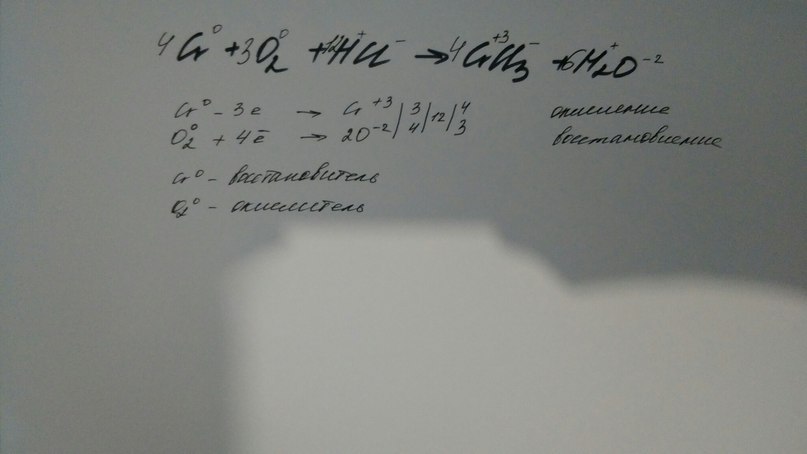 4Cr⁰ + 3O₂⁰ + 12H⁺Cl⁻ → 4Cr⁺³Cl₃⁻ + 6H₂⁺O⁻²
Cr⁰ - 3e → Cr⁺³ | 3 | 12 | 4 окисление
O₂⁰ + 4ē → 2O⁻² | 4 | | 3 восстановление
Cr⁰ - восстановитель
O₂⁰ - окислитель